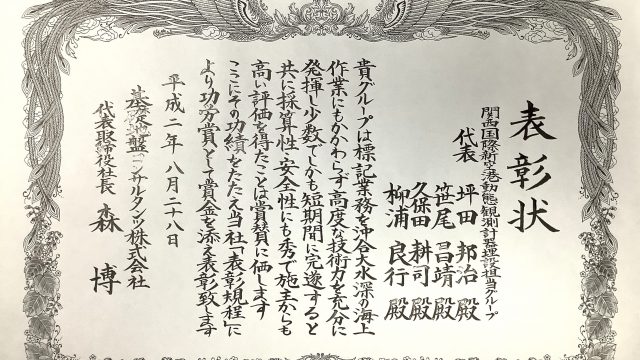 表彰状
関西国際新空港動態観測計器埋設担当グループ
代表 坪田邦治殿
笹尾昌靖殿
久保田耕司殿
柳浦良行殿
貴グループは標記業務を沖合大水深の海上
作業にもかかわらず高度な技術力を充分に
発揮し少数でしかも短期間に完遂すると
共に採算性・安全性にも秀で施主からも
高い評価を得たことは賞賛に価します
ここにその功績をたたえ当社「表彰規程」に
より功労賞として賞金を添え表彰致します
平成二年八月二十八日
基礎地盤コンサルタンツ株式会社
代表取締役社長 森博